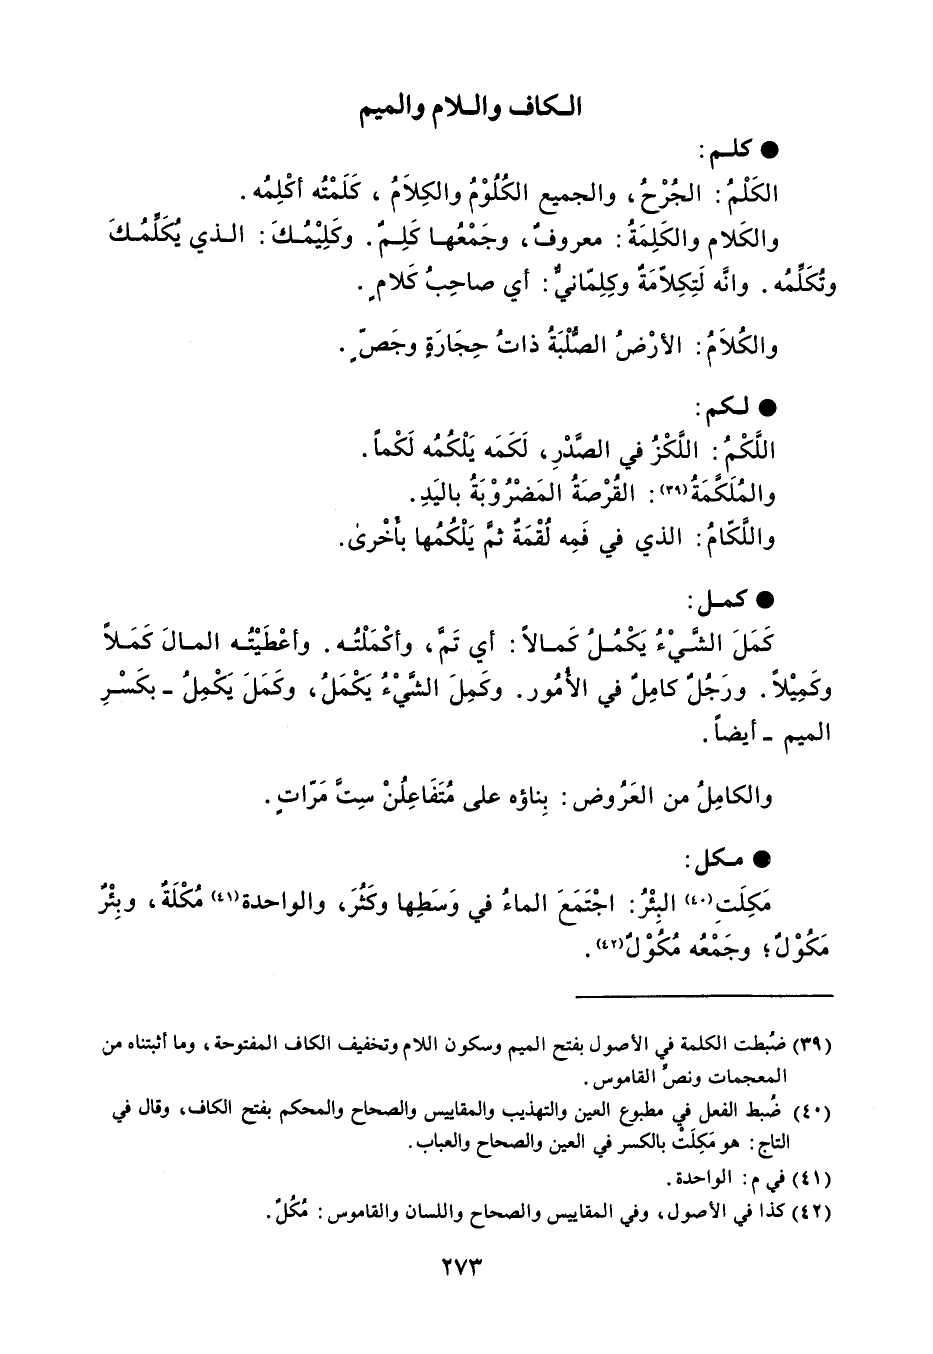 الكاف واللام والميم
● كلم:
الكَلْمُ: الجُرْحُ، والجميع الكُلُوْمُ والكِلَامُ، كَلَمْتُه أكْلِمُه.
والكَلام والكَلِمَةُ: معروفٌ، وجَمْعُها كَلِمٌ. وكَلِيْمُكَ: الذي يُكَلِّمُكَ
وتُكَلِّمُه. وانَّه لَتِكِلاّمَةٌ وكِلِمّانيٌّ: أي صاحِبُ كَلامٍ.
والكُلَامُ: الأرْضُ الصُّلْبَةُ ذاتُ حِجَارَةٍ وجَصٍّ.
● لكم:
اللَّكْمُ: اللَّكْزُ في الصَّدْرِ، لَكَمَه يَلْكُمُه لَكْماً.
والمُلَكَّمَةُ(٣٩): القُرْصَةُ المَضْرُوْبَةُ باليَدِ.
واللَّكّامُ: الذي في فَمِه لُقْمَةٌ ثمَّ يَلْكُمُها بأُخْرىٰ.
● كمل:
كَمَلَ الشَّيْءُ يَكْمُلُ كَمالاً: أي تَمَّ، وأكْمَلْتُه. وأعْطَيْتُه المالَ كَمَلاً
وكَمِيْلاً. ورَجُلٌ كامِلٌ في الأُمُور. وكَمِلَ الشَّيْءُ يَكْمَلُ، وكَمَلَ يَكْمِلُ ـ بكَسْرِ
الميم ـ أيضاً.
والكامِلُ من العَرُوض: بِناؤه على مُتَفَاعِلُنْ سِتَّ مَرّاتٍ.
● مكل:
مَكِلَتِ(٤٠) البِئْرُ: اجْتَمَعَ الماءُ في وَسَطِها وكَثُرَ، والواحدة(٤١) مُكْلَةٌ، وبِئْرٌ
مَكُوْلٌ؛ وجَمْعُه مُكُوْلٌ(٤٢).
(٣٩) ضُبطت الكلمة في الأصول بفتح الميم وسكون اللام وتخفيف الكاف المفتوحة، وما أثبتناه من
المعجمات ونصُّ القاموس.
(٤٠) ضُبط الفعل في مطبوع العين والتهذيب والمقاييس والصحاح والمحكم بفتح الكاف، وقال في
التاج: هو مَكِلَتْ بالكسر في العين والصحاح والعباب.
(٤١) في م: الواحدة.
(٤٢) كذا في الأصول، وفي المقاييس والصحاح واللسان والقاموس: مُكُلٌ.
٢٧٣